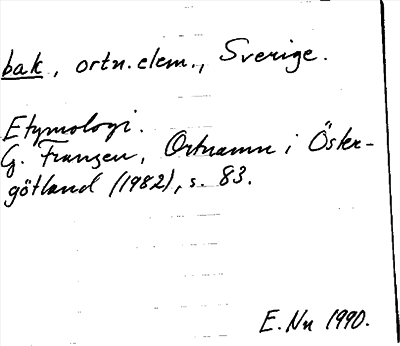 bak, ortn.elem., Sverige.
Etymologi.
G. Franzén, Ortnamn i Öster-
götland (1982), s. 83.
E. Nn 1990.